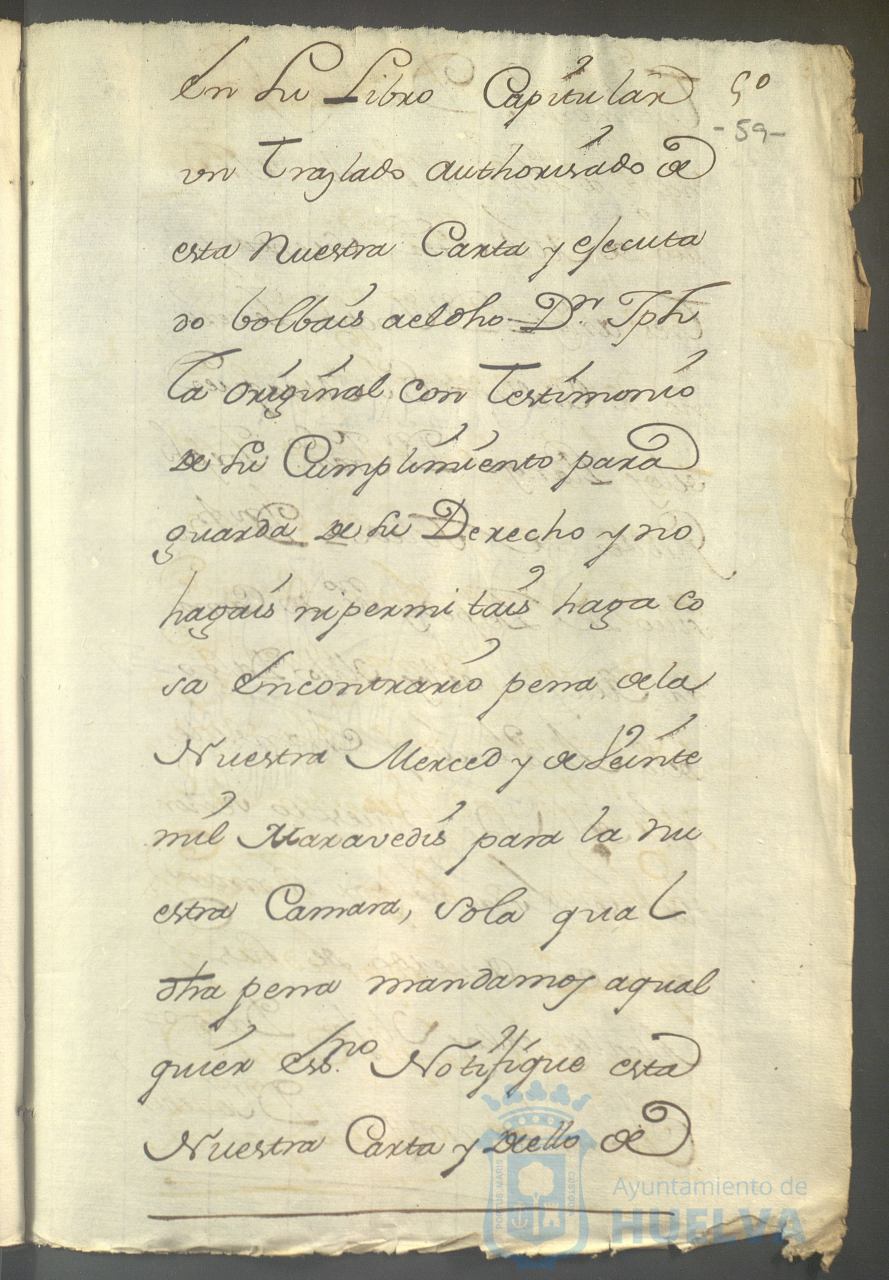 en su Libro Capitular 50
-59-
vn Traslado authorisado de
esta Nuestra Carta y esecuta
do bolbais a el dho Dn. Jph
la original con Testimonio
de su Cumplimiento para
guarda de su Derecho y no
hagais ni permitais haga co
sa en contrario pena de la
Nuestra Merced y de Veinte
mil Maravedis para la nu
estra Camara, so la qual
dha pena mandamos a qual
quier essno. Notifique esta
Nuestra Carta y de ello de
PORTUS MARIS
CUSTODIA
Ayuntamiento de
HUELVA